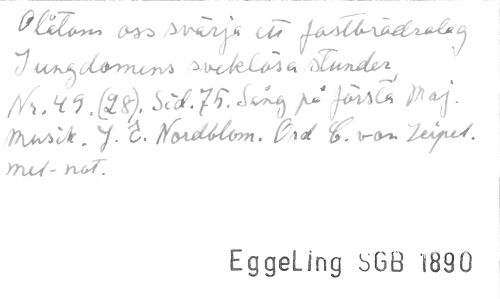 Olåtom oss svärja ett fostbrödralag
I ungdomens sveklösa stunder
Nr. 49. (28). Sid. 75. Sång på första Maj.
Musik. J. E. Nordblom. Ord C. von Zeipel.
mel-not.
EggeLing SGB 1890